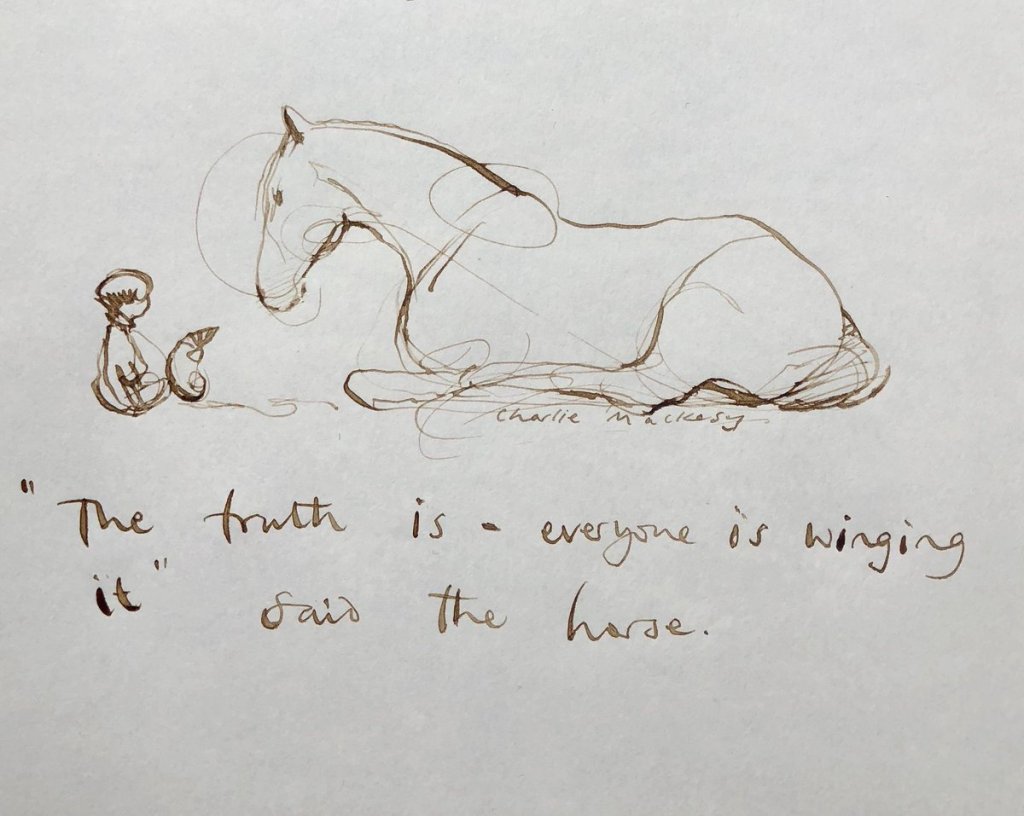 Charlie Mackesy
"The truth is - everyone is winging
it" said the horse.